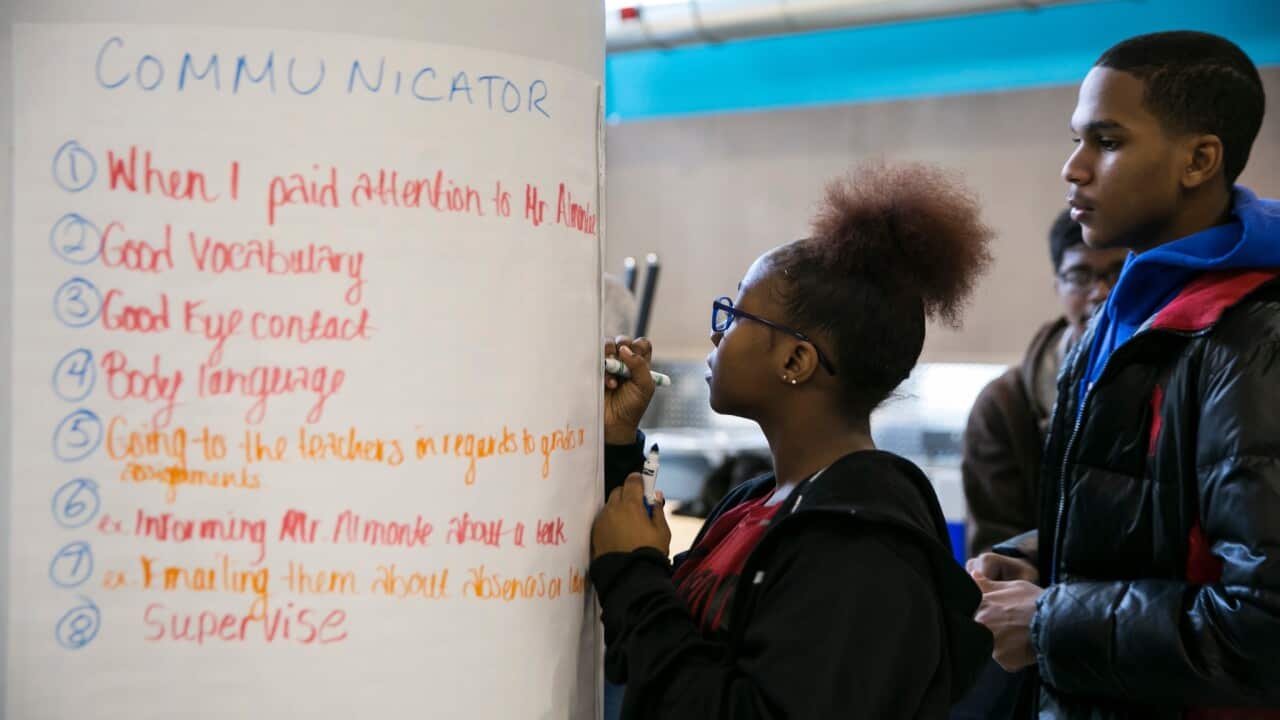 COMMUNICATOR
1 When I paid attention to Mr. Almonte
2 Good Vocabulary
3 Good Eye contact
4 Body language
5 Going to the teachers in regards to grades or
assignments
6 ex. Informing Mr. Almonte about a leak
7 ex. Emailing them about absences or
8 Supervise